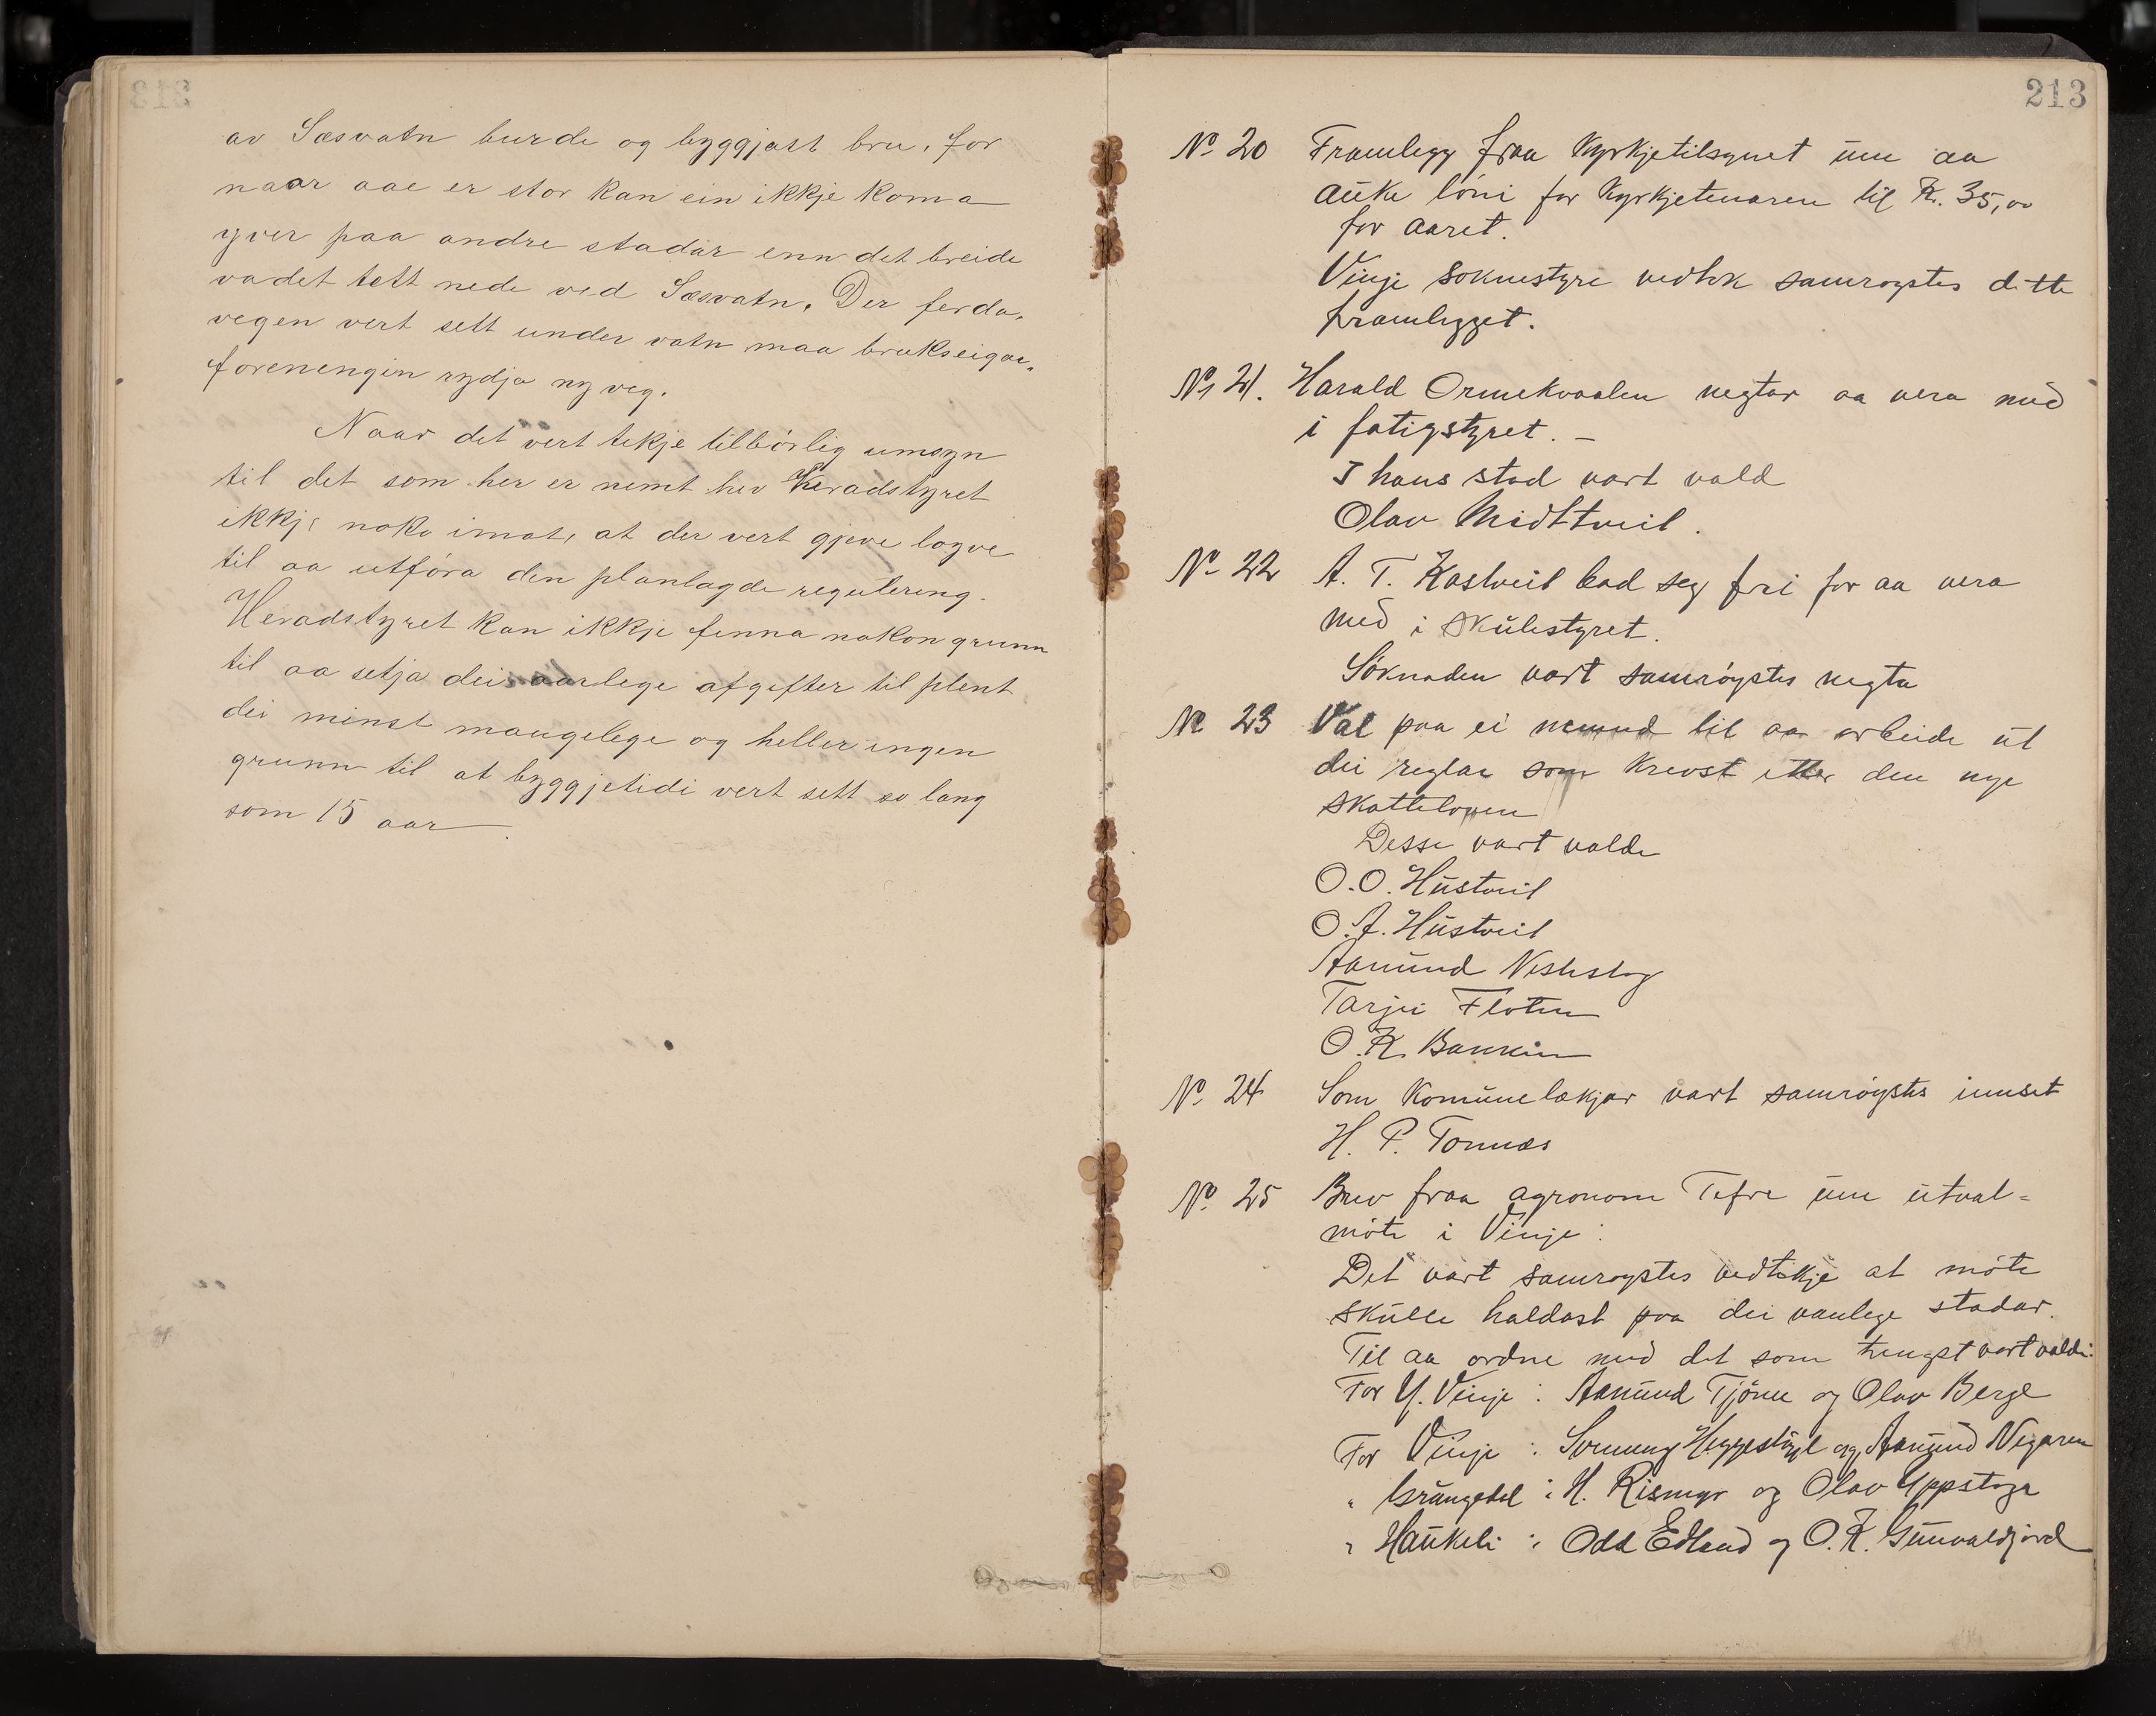 av Sæsvatn burde og byggjast bru, for
naar aae er stor kan ein ikkje koma
yver paa andre stadar enn det breide
vadet tett nede ved Sæsvatn. Der ferda-
vegen vert sett under vatn maa brukseigar-
foreningin rydja ny veg.
Naar det vert tekje tilbørlig umsyn
til det som her er nemt hev Heradstyret
ikkje noko imot, at der vert gjeve logve
til aa utføra den planlagde regulering.
Heradstyret kan ikkje finna nokon grunn
til aa setja dei aarlege afgifter til plent
dei minst maugelege og heller ingen
grunn til at byggjetidi vert sett so lang
som 15 aar
213
№ 20 Framlegg fraa Kyrkjetilsynet um aa
auke løni for Kyrkjetenaren til Kr. 35,00
for aaret.
Vinje soknestyre vedtok samrøystes dette
framlegget.
№ 21. Harald Ormekvaalen negtar aa vera med
i fatigstyret. –
I hans stad vart vald
Olav Midttveit.
№ 22 A. T. Kostveit bad seg fri for aa vera
med i skulestyret.
Søknaden vart samrøystes negta
№ 23 Val paa ei nemnd til aa arbeide ut
dei reglar som krevst etter den nye
skatteloven
Desse vart valde
O. O. Hustveit
O. A. Hustveit
Aamund Nestestog
Tarjei Floten
O. K. Baukin
№ 24 Som Komunelækjar vart samrøystes innset
H. P. Tonnæs
№ 25 Brev fraa agronom Tefre um utval-
møte i Vinje:
Det vart samrøystes vedtekje at møte
skulle haldast paa dei vanlege stadar.
Til aa ordne med det som trengst vart valde:
For Y. Vinje: Aamund Tjønn og Olav Berge
For Vinje: Sveinung Heggestøyl og Aamund Nigaren
" Grungedal: H. Rismyr og Olav Uppstoga
" Haukeli: Odd Edland og O. K. Gunvaldjord